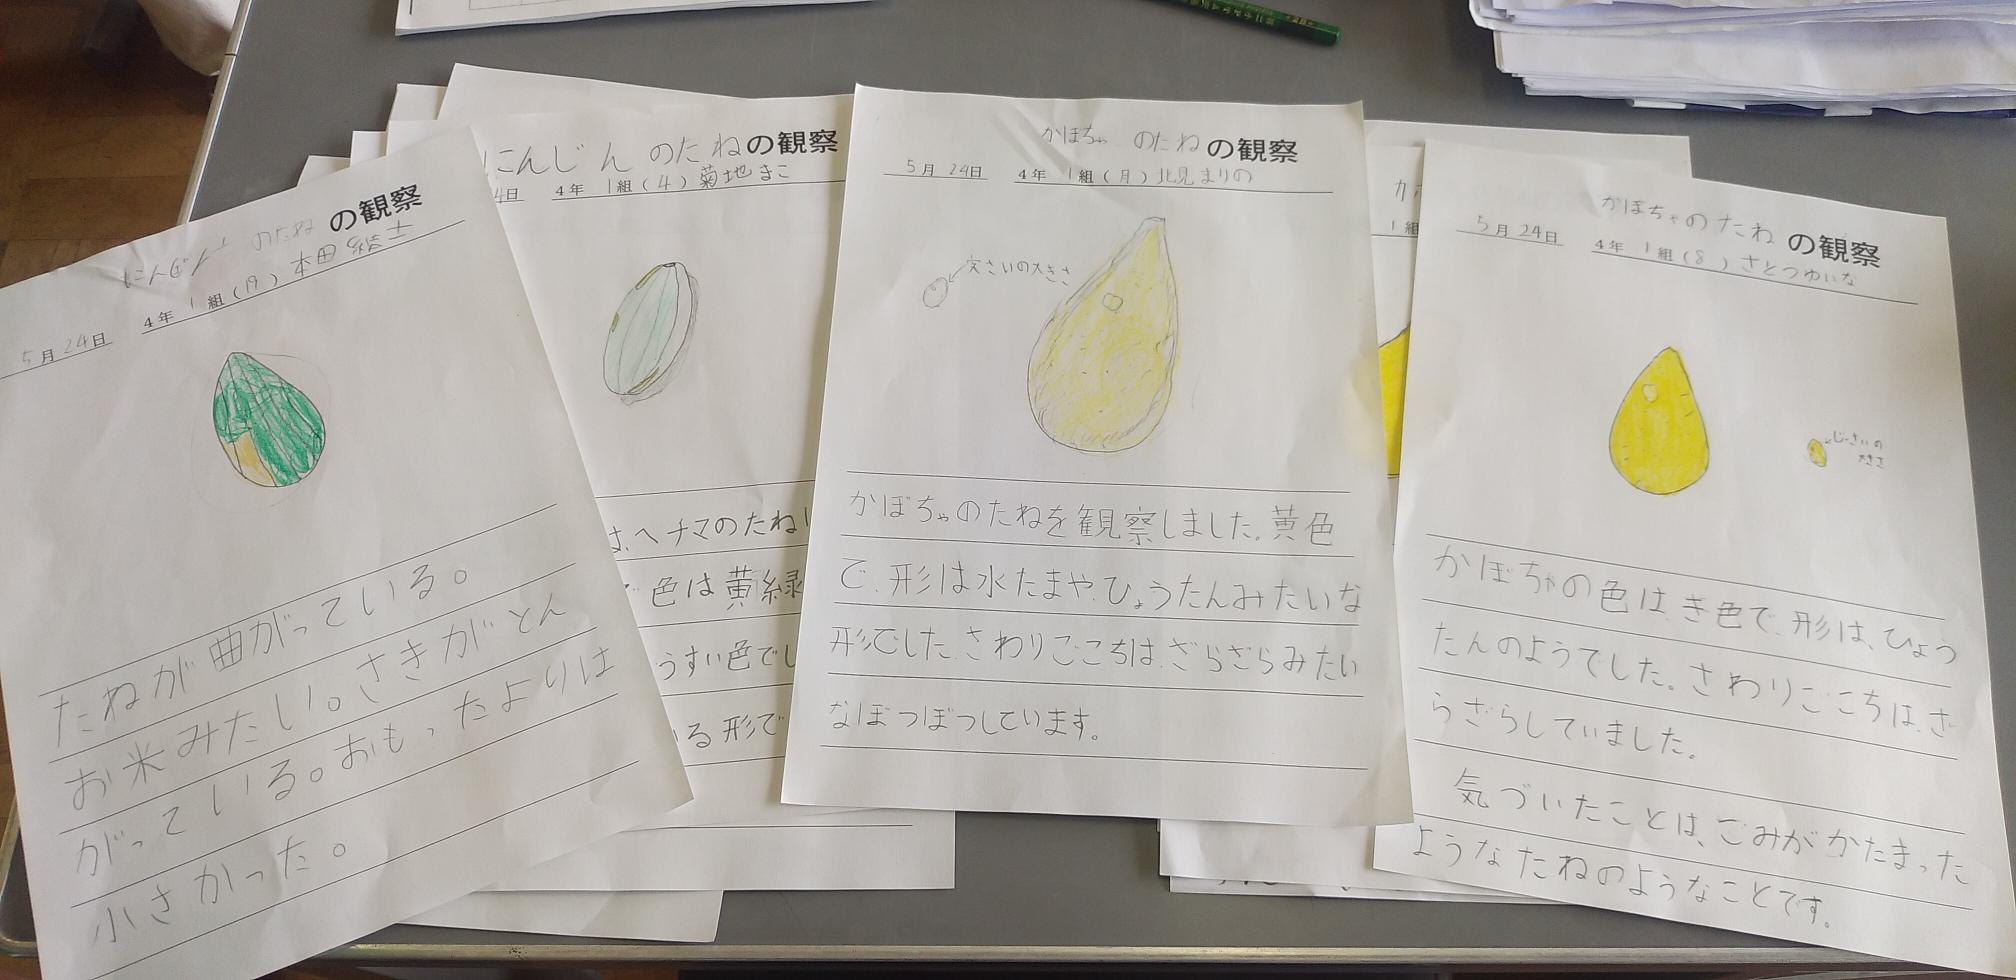 にんじん のたねの観察
5月24日 4年 1組(19)本田
たねが曲がっている。
お米みたい。さきがとん
がっている。おもったよりは
小さかった。
にんじん のたねの観察
4日 4年 1組(4)菊地まこ
は、ヘチマのたね
色は黄緑
うすい色でし
いる形で
かぼちゃ のたねの観察
5月24日 4年 1組(月)北見まりの
実さいの大きさ
かぼちゃのたねを観察しました。黄色
で、形は水たまや、ひょうたんみたいな
形でした。さわりごこちは、ざらざらみたい
なぼつぼつしています。
1組
かぼちゃのたねの観察
5月24日 4年 1組(8)さとつゆいな
じっさいの
大きさ
かぼちゃの色は、き色で、形は、ひょう
たんのようでした。さわりごこちは、ざ
らざらしていました。
気づいたことは、ごみがかたまった
ようなたねのようなことです。